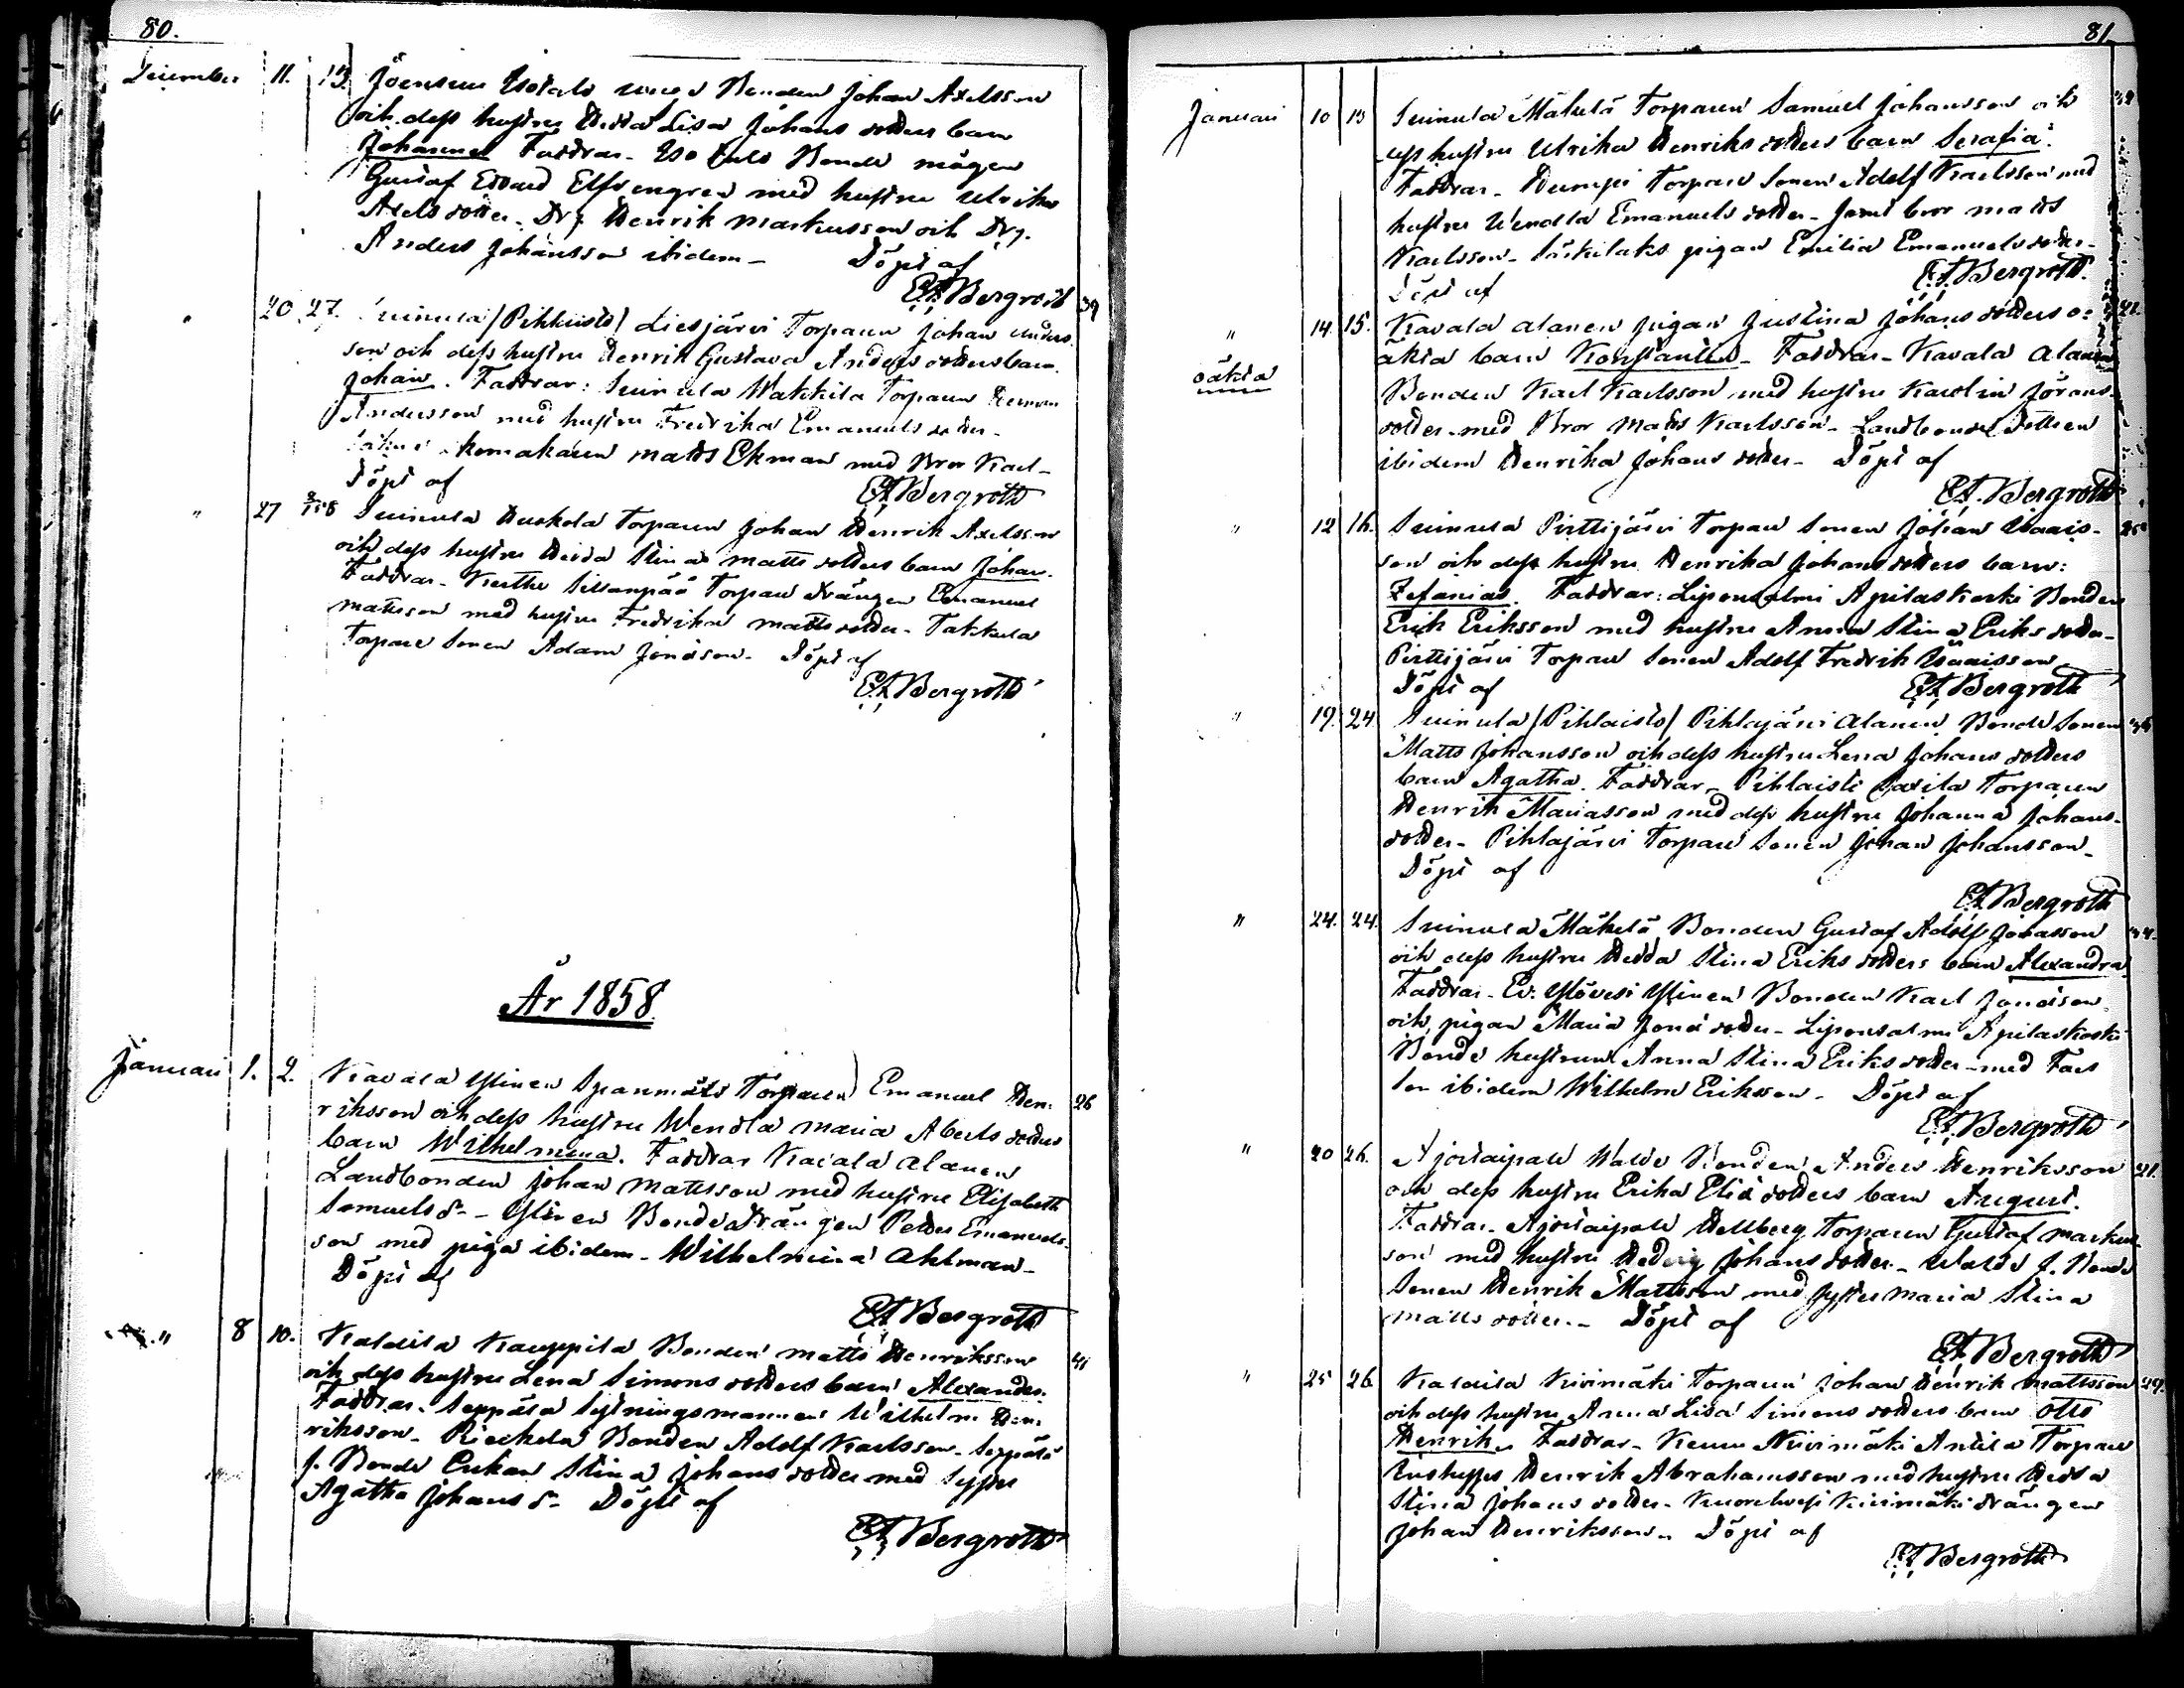 80.
December 11. 13. Joensuu Isotalo unga Bonden Johan Axelsson
och dess hustru Hedda Lisa Johans dotters barn
Johannes Faddrar - Isotalo Bonde mågen
Gustaf Edvard Elfvengren med hustru Ulrika
Axels dotter - Drg. Henrik Markusson och Drg.
Anders Johansson ibidem - Döpt af
Bergroth
" 20 27. Suinula /Pihlaisto/ Liesjärvi Torparen Johan Anders- 39
son och dess hustru Henrik Gustava Anders dotters barn
Johan. Faddrar: Suinula Wakkila Torparen Herman
Andersson med hustru Fredrika Emanuels dotter -
skomakaren Matts Ekman med Bror Karl -
Döpt af
Bergroth
" 27 Suinula Uuskola Torparen Johan Henrik Axelsson
och dess hustru Heda Stina Matts dotters barn Johan.
Faddrar - Sillanpää Torpare drängen Emanuel
Mattsson med hustru Fredrika Matts dotter - Takkula
Torpare sonen Adam Jonasson - Döpt af
Bergroth
År 1858.
Januari 1. 2. Kavala Ylinen Torparen Emanuel Hen- 26
riksson och dess hustru Wendla Maria Aberts dotters
barn Wilhelmina. Faddrar Kavala Alanen
Landbonden Johan Mattsson med hustru Elisabeth
Samuels dr - Ylinen Bonde drängen Petter Emanuels-
son med piga ibidem - Wilhelmina Ahlman -
Döpt af
Bergroth
" 8 10. Kaukola Kauppila Bonden Matts Henriksson 41
och dess hustru Lena Simons dotters barn Alexander.
Faddrar - Seppälä Sytningsmannen Wilhelm Hen-
riksson - Bonden Adolf Karlsson - Seppälä
f. Bonde Enkan Stina Johans dotter med Syster
Agatha Johans dr - Döpt af
Bergroth
81
Januari 10 13 Suinula Mäkelä Torparen Samuel Johansson och
dess hustru Ulrika Henriks dotters barn Serafia.
Faddrar - Torpare Sonen Adolf Karlsson med
hustru Wendla Emanuels dotter - Jemt bror Matts
Karlsson - pigan Emilia Emanuels dotter -
Döpt af Bergroth
" 14. 15. Kavala Alanen pigan Justina Johans dotters o-
oäkta äkta barn Konstantin - Faddrar - Kavala Alanen
Bonden Karl Karlsson med hustru Karolin Jörans
dotter - med Bror Matts Karlsson - Landbonde dottren
ibidem Henrika Johans dotter - Döpt af
Bergroth
" 12 16. Suinula Pirttijärvi Torpare Sonen Johan Isaacs-
son och dess hustru Henrika Johans dotters barn:
Zefanias. Faddrar: Liponsalmi Apilaskoski Bonden
Erik Eriksson med hustru Anna Stina Eriks dotter -
Pirttijärvi Torpare Sonen Adolf Fredrik Isaacsson
Döpt af Bergroth
" 19. 24 Suinula /Pihlaisto/ Pihlajärvi Alanen Bonde Sonen
Matts Johansson och dess hustru Lena Johans dotters
barn Agatha. Faddrar - Pihlaisto Torparen
Henrik Mariasson med dess hustru Johanna Johans-
dotter - Pihlajärvi Torpare Sonen Johan Johansson -
Döpt af
Bergroth
" 24. 24. Suinula Mäkelä Bonden Gustaf Adolf Jonasson
och dess hustru Hedda Stina Eriks dotters barn Alexandra
Faddrar - Ev. Ylövesi Ylinen Bonden Karl Jonasson
och pigan Maria Jonas dotter - Liponsalmi Apilaskoski
Bonde hustrun Anna Stina Eriks dotter - med Fars
son ibidem Wilhelm Eriksson - Döpt af
Bergroth
" 20 26. Ajostaipale Bonden Anders Henriksson 21.
och dess hustru Erika Elias dotters barn August.
Faddrar - Ajostaipale Hellberg Torparen Gustaf Markus-
son med hustru Hedvig Johans dotter - f. Bonde
Sonen Henrik Mattsson med syster Maria Stina
Matts dotter - Döpt af
Bergroth
" 25 26. Kivimäki Torparen Johan Henrik Mattsson 29.
och dess hustru Anna Lisa Simons dotters barn Otto
Henrik. Faddrar - Keuru Kivimäki Anttila Torpare
Inhyses Henrik Abrahamsson med hustru Hedda
Stina Johans dotter - Kuorehvesi Kivimäki drängen
Johan Henriksson - Döpt af
Bergroth